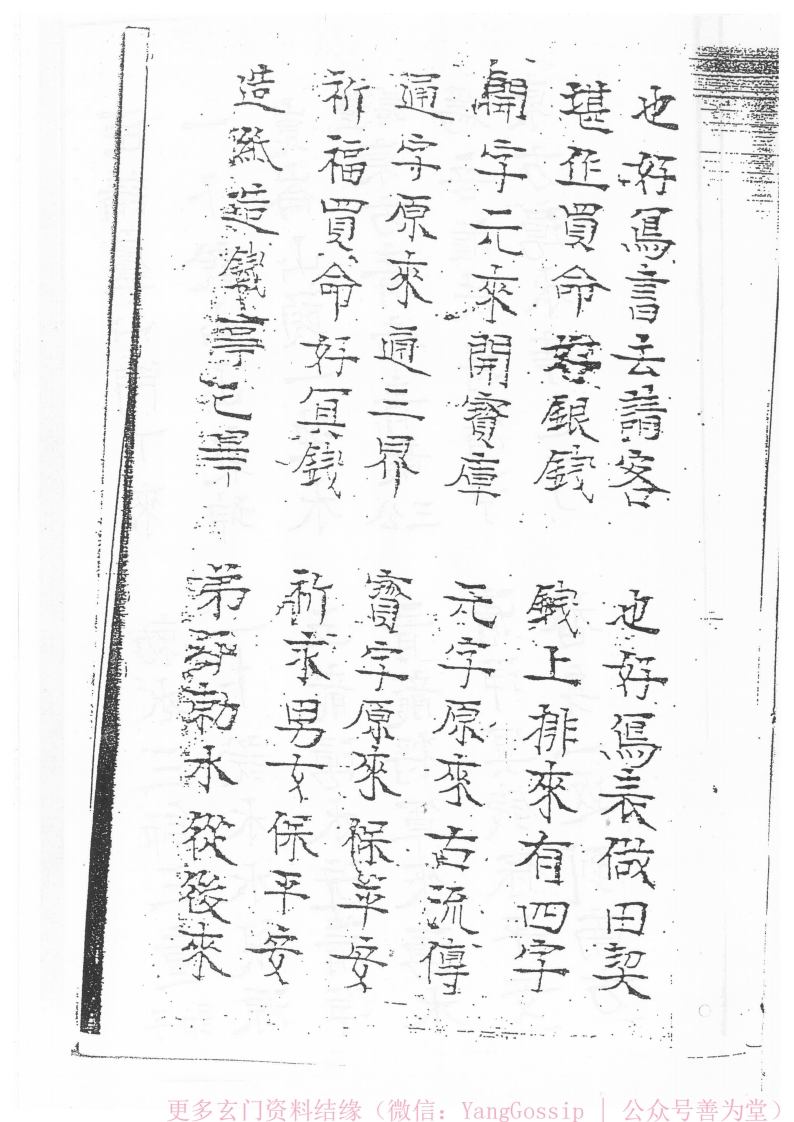 也好寫書去請客　也好寫表做田契
堪作買命好銀錢　錢上排來有四字
開字元來開寳庫　元字原來古流傳
通字原來通三界　寳字原來保平安
祈福買命好冥錢　祈求男女保平安
造紙造錢事已畢　弟子勑水從後來
更多玄门资料结缘（微信：YangGossip | 公众号善为堂）